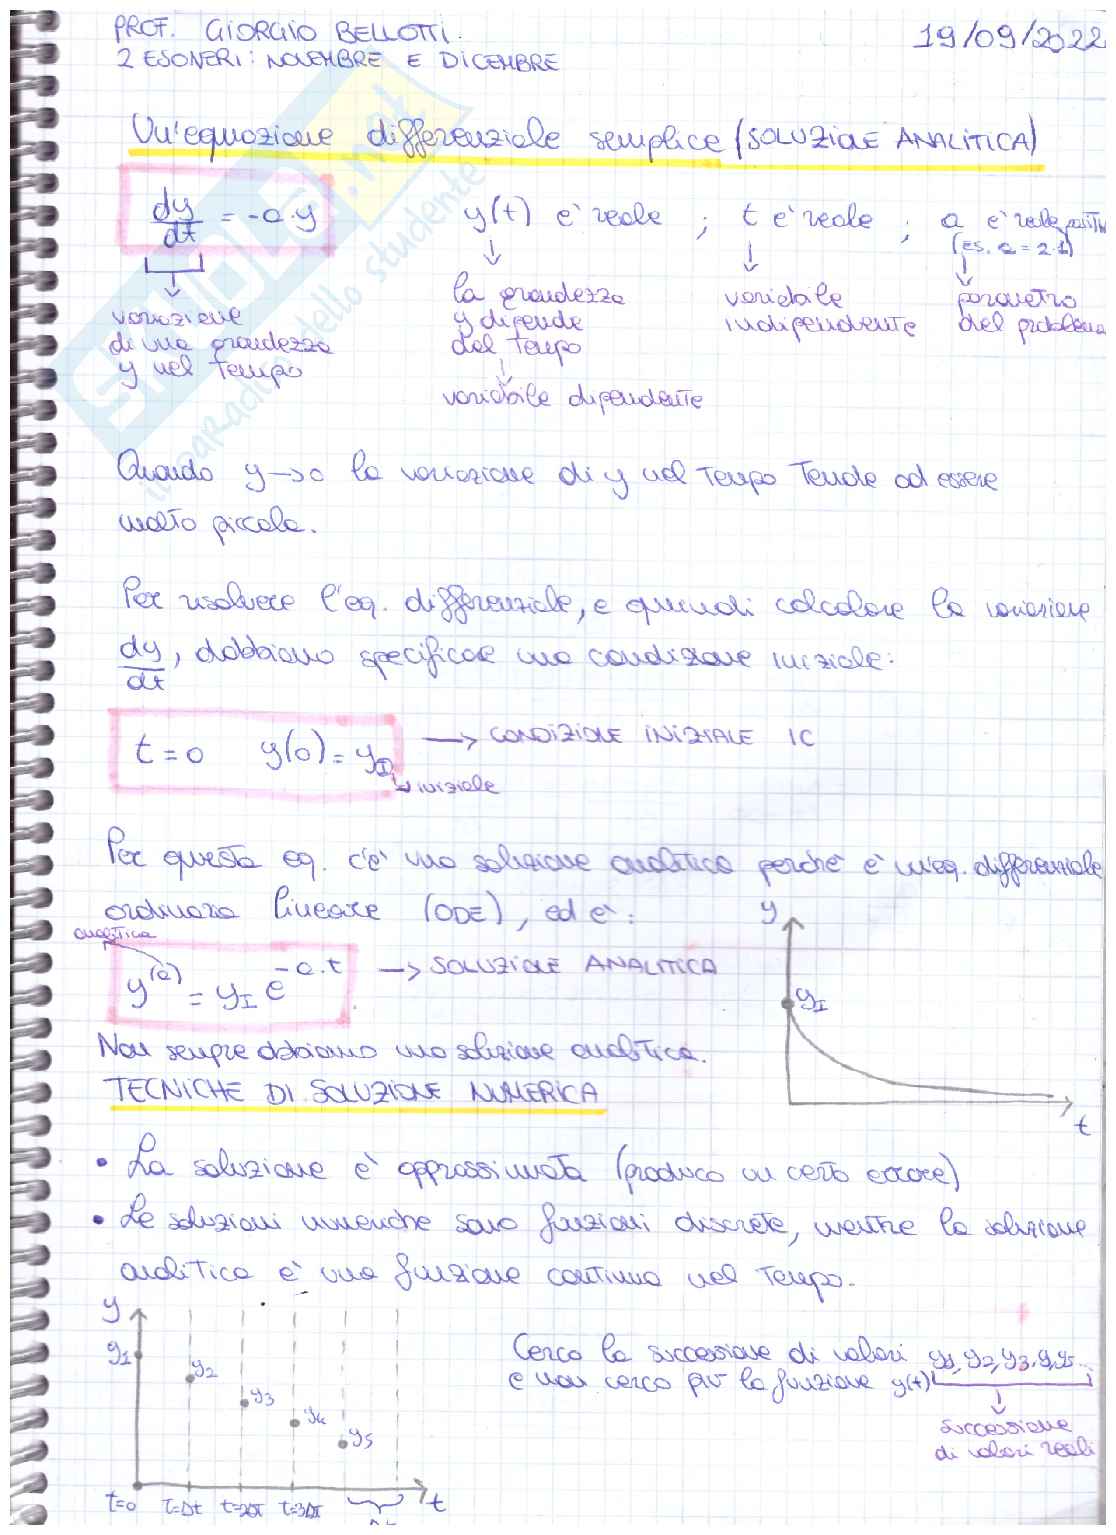 PROF. GIORGIO BELLOTTI. 19/09/2022
2 ESONERI: NOVEMBRE E DICEMBRE
Un'equazione differenziale semplice (SOLUZIONE ANALITICA)
dy/dt = -a·y y(t) e' reale ; t e' reale ; a e' reale positivo
(es. a = 2.1)
variazione di una grandezza y nel tempo
la grandezza y dipende dal tempo
variabile dipendente
variabile indipendente
parametro del problema
Quando y→0 la variazione di y nel tempo tende ad essere
molto piccola.
Per risolvere l'eq. differenziale, e quindi calcolare la variazione
dy/dt, dobbiamo specificare una condizione iniziale:
t=0 y(0)=y_I → CONDIZIONE INIZIALE IC
iniziale
Per questa eq. c'e' una soluzione analitica perche' e' un'eq. differenziale
ordinaria lineare (ODE), ed e':
analitica
y^(a) = y_I e^-a·t → SOLUZIONE ANALITICA
y
y_I
t
Non sempre abbiamo una soluzione analitica.
TECNICHE DI SOLUZIONE NUMERICA
• La soluzione e' approssimata (produco un certo errore)
• Le soluzioni numeriche sono funzioni discrete, mentre la soluzione
analitica e' una funzione continua nel tempo.
y
y1
y2
y3
y4
y5
t=0 t=Δt t=2Δt t=3Δt t
Δt
Cerco la successione di valori y1, y2, y3, y4, y5...
e non cerco piu' la funzione y(t)
successione
di valori reali
SKUOLA.net
il paradiso dello studente